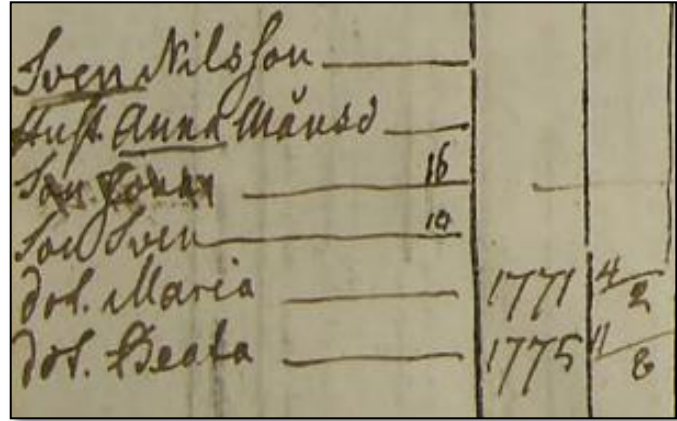 Sven Nilsson
Hust. Anna Månsd
Son Jonas 16
Son Sven 10
dot. Maria 1771 4/2
dot. Beata 1775 11/8